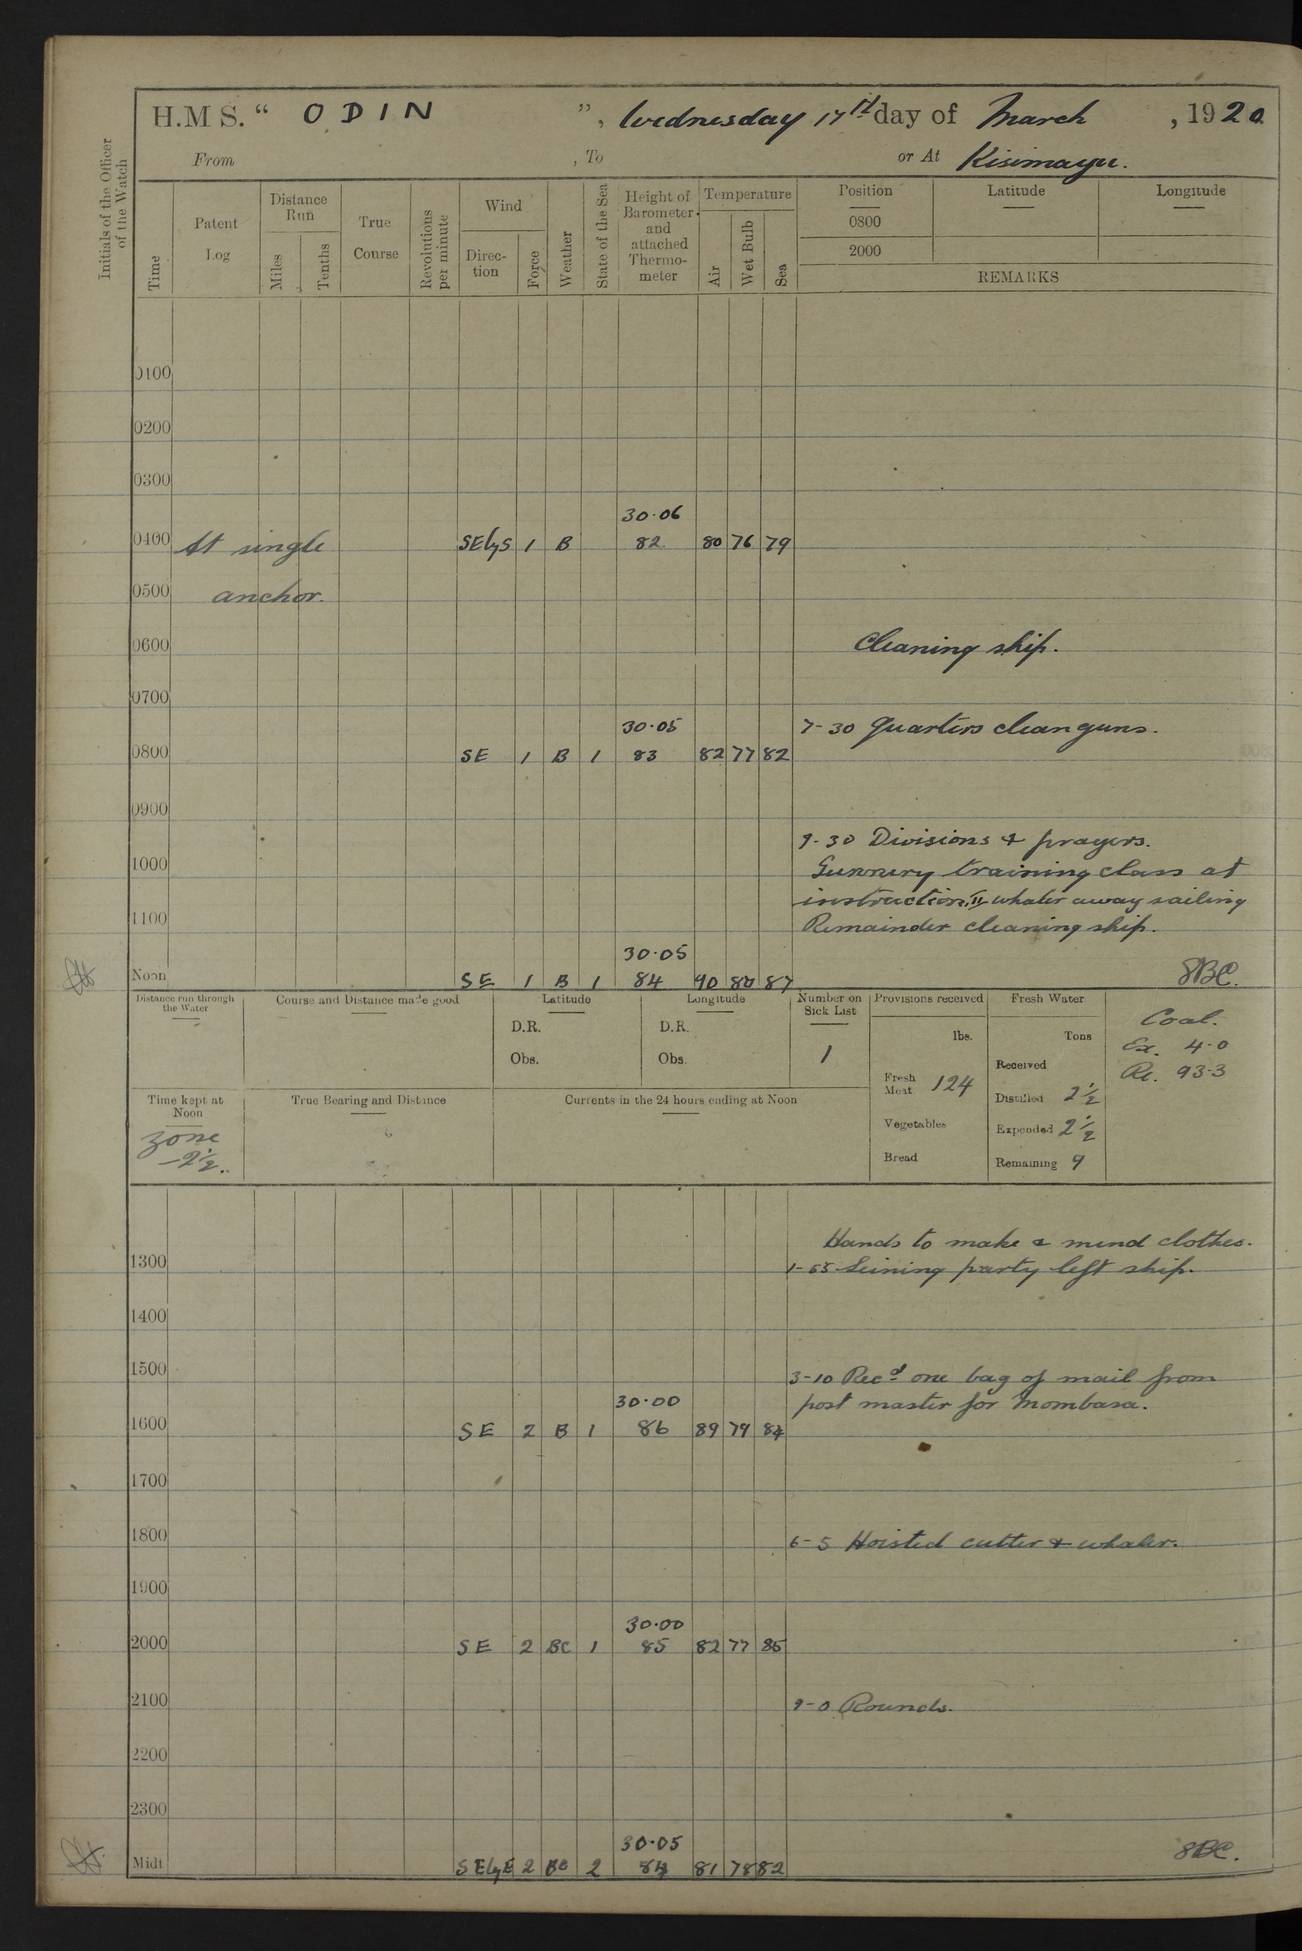 H.M S. “ ODIN ”, Wednesday 17th day of March , 1920.
From , To or At Kisimayu.
Initials of the Officer of the Watch
Time
Patent Log
Distance Run
Miles
Tenths
True Course
Revolutions per minute
Wind
Direc-tion
Force
Weather
State of the Sea
Height of Barometer and attached Thermo-meter
Temperature
Air
Wet Bulb
Sea
Position Latitude Longitude
0800
2000
REMARKS
0100
0200
0300
30.06
0400 At single SEbyS 1 B 82 80 76 79
0500 anchor.
0600 Cleaning ship.
0700
30.05 7-30 Quarters clean guns.
0800 SE 1 B 1 83 82 77 82
0900
9-30 Divisions & prayers.
1000 Gunnery training class at
instruction, whaler away sailing
1100 Remainder cleaning ship.
30.05
Noon SE 1 B 1 84 90 80 87 SBC.
Distance run through the Water
Course and Distance made good
Latitude
D.R.
Obs.
Longitude
D.R.
Obs.
Number on Sick List
1
Provisions received
lbs.
Fresh Meat 124
Vegetables
Bread
Fresh Water
Tons
Received
Distilled 2½
Expended 2½
Remaining 9
Coal.
Ex. 4.0
Re. 93.3
Time kept at Noon
Zone
-2½.
True Bearing and Distance
Currents in the 24 hours ending at Noon
Hands to make & mend clothes.
1300 1-55 Seining party left ship.
1400
1500 3-10 Recd one bag of mail from
30.00 post master for Mombasa.
1600 SE 2 B 1 86 89 79 84
1700
1800 6-5 Hoisted cutter & whaler.
1900
30.00
2000 SE 2 BC 1 85 82 77 85
2100 9-0 Rounds.
2200
2300
30.05
Midt SEbyE 2 BC 2 84 81 78 82 SBC.